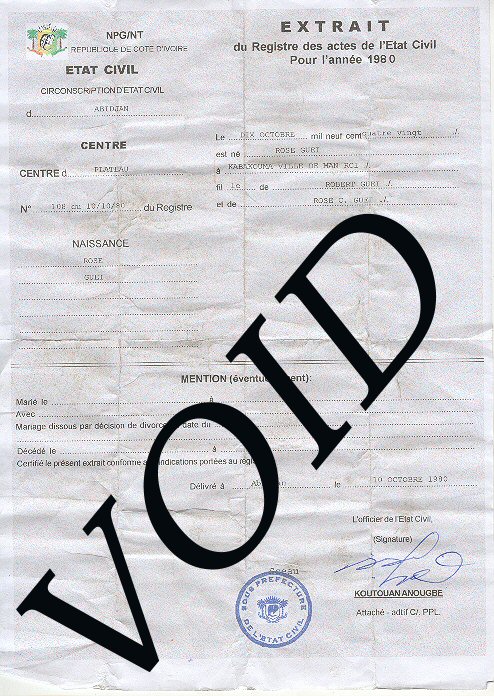 NPG/NT
REPUBLIQUE DE COTE D'IVOIRE
ETAT CIVIL
CIRCONSCRIPTION D'ETAT CIVIL
d ABIDJAN
CENTRE
CENTRE d PLATEAU
N° 108 du 10/10/80 du Registre
NAISSANCE
ROSE
GUEI
EXTRAIT
du Registre des actes de l'Etat Civil
Pour l'année 1980
Le DIX OCTOBRE mil neuf cent quatre vingt /.
est né ROSE GUEI
à KABAKOUMA VILLE DE MAN RCI /.
fil le de ROBERT GUEI
et de ROSE C. GUEI ./
MENTION (éventuellement):
Marié le à
Avec
Mariage dissous par décision de divorce date du
Décédé le à
Certifie le présent extrait conforme indications portées au
Délivré à le 10 OCTOBRE 1980
L'officier de l'Etat Civil,
(Signature)
Sceau
SOUS PREFECTURE
DE L'ETAT CIVIL
KOUTOUAN ANOUGBE
Attaché - adtif C/. PPL.
VOID